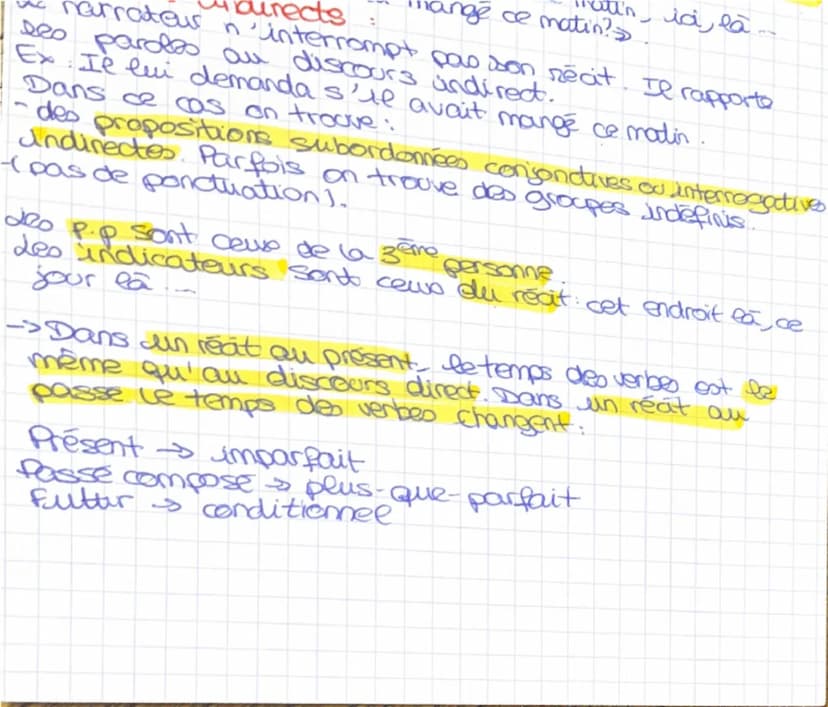 indirects :
mangé ce matin?»
matin, ici, là...
narrateur n'interrompt pas son récit. Il rapporte
des paroles au discours indirect.
Ex : Il lui demanda s'il avait mangé ce matin.
Dans ce cas on trouve :
- des propositions subordonnées conjonctives ou interrogatives
indirectes. Parfois on trouve des groupes indéfinis.
(pas de ponctuation).
des p.p sont ceux de la 3ème personne.
des indicateurs sont ceux du récit : cet endroit là, ce
jour là ...
-> Dans un récit au présent, le temps des verbes est le
même qu'au discours direct. Dans un récit au
passé le temps des verbes changent :
Présent -> imparfait
Passé composé -> plus-que-parfait
Futtur -> conditionnel